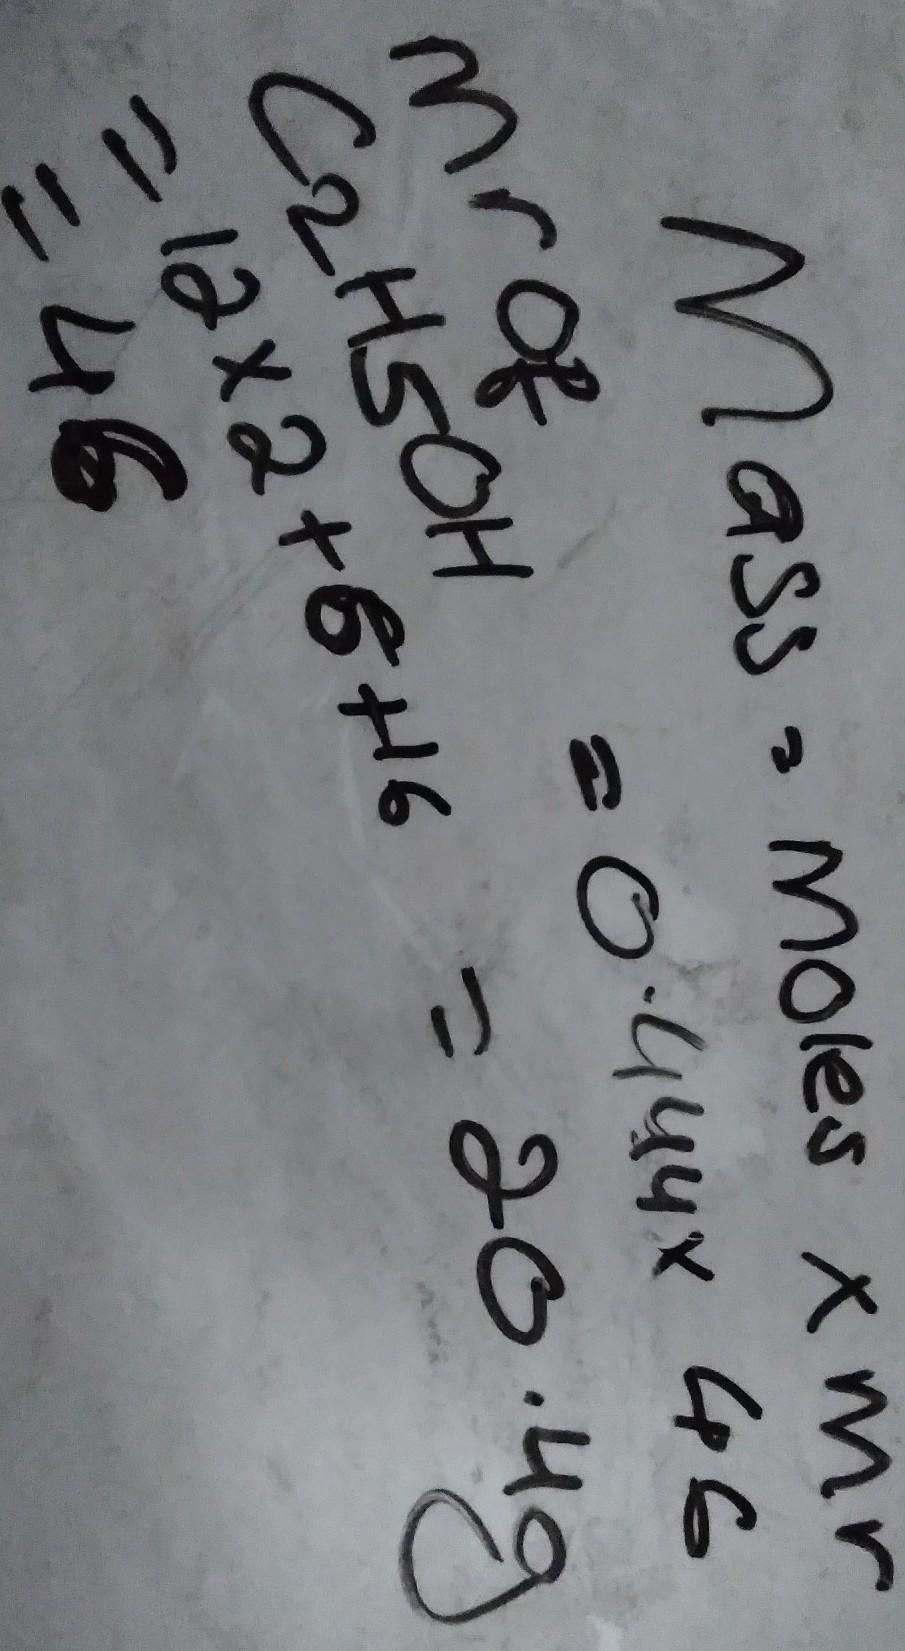 Mass = Moles x Mr
= 0.444 x 46
= 20.4g
Mr of
C2H5OH
= 12 x 2 + 6 + 16
= 46